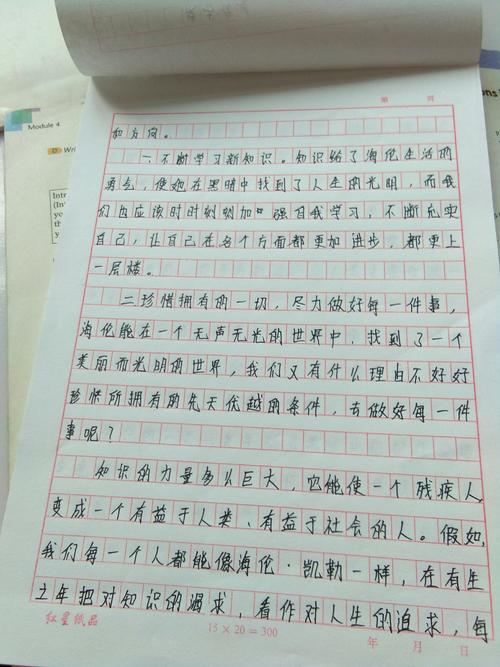 第 页
Module 4
Wri
Intr
(In
you
the
y
ons
和方向。
一、不断学习新知识。知识给了海伦生活的
勇气，使她在黑暗中找到了人生的光明，而我
们也应该时时刻刻加强自我学习，不断充实
自己，让自己在各个方面都更加进步，都更上
一层楼。
二珍惜拥有的一切，尽力做好每一件事，
海伦能在一个无声无光的世界中，找到了一个
美丽而光明的世界，我们又有什么理由不好好
珍惜所拥有的先天优越的条件，去做好每一件
事呢？
知识的力量多么巨大，它能使一个残疾人，
变成一个有益于人类、有益于社会的人。假如，
我们每一个人都能像海伦·凯勒一样，在有生
之年把对知识的渴求，看作对人生的追求，每
红星纸品
15×20=300
年 月 日